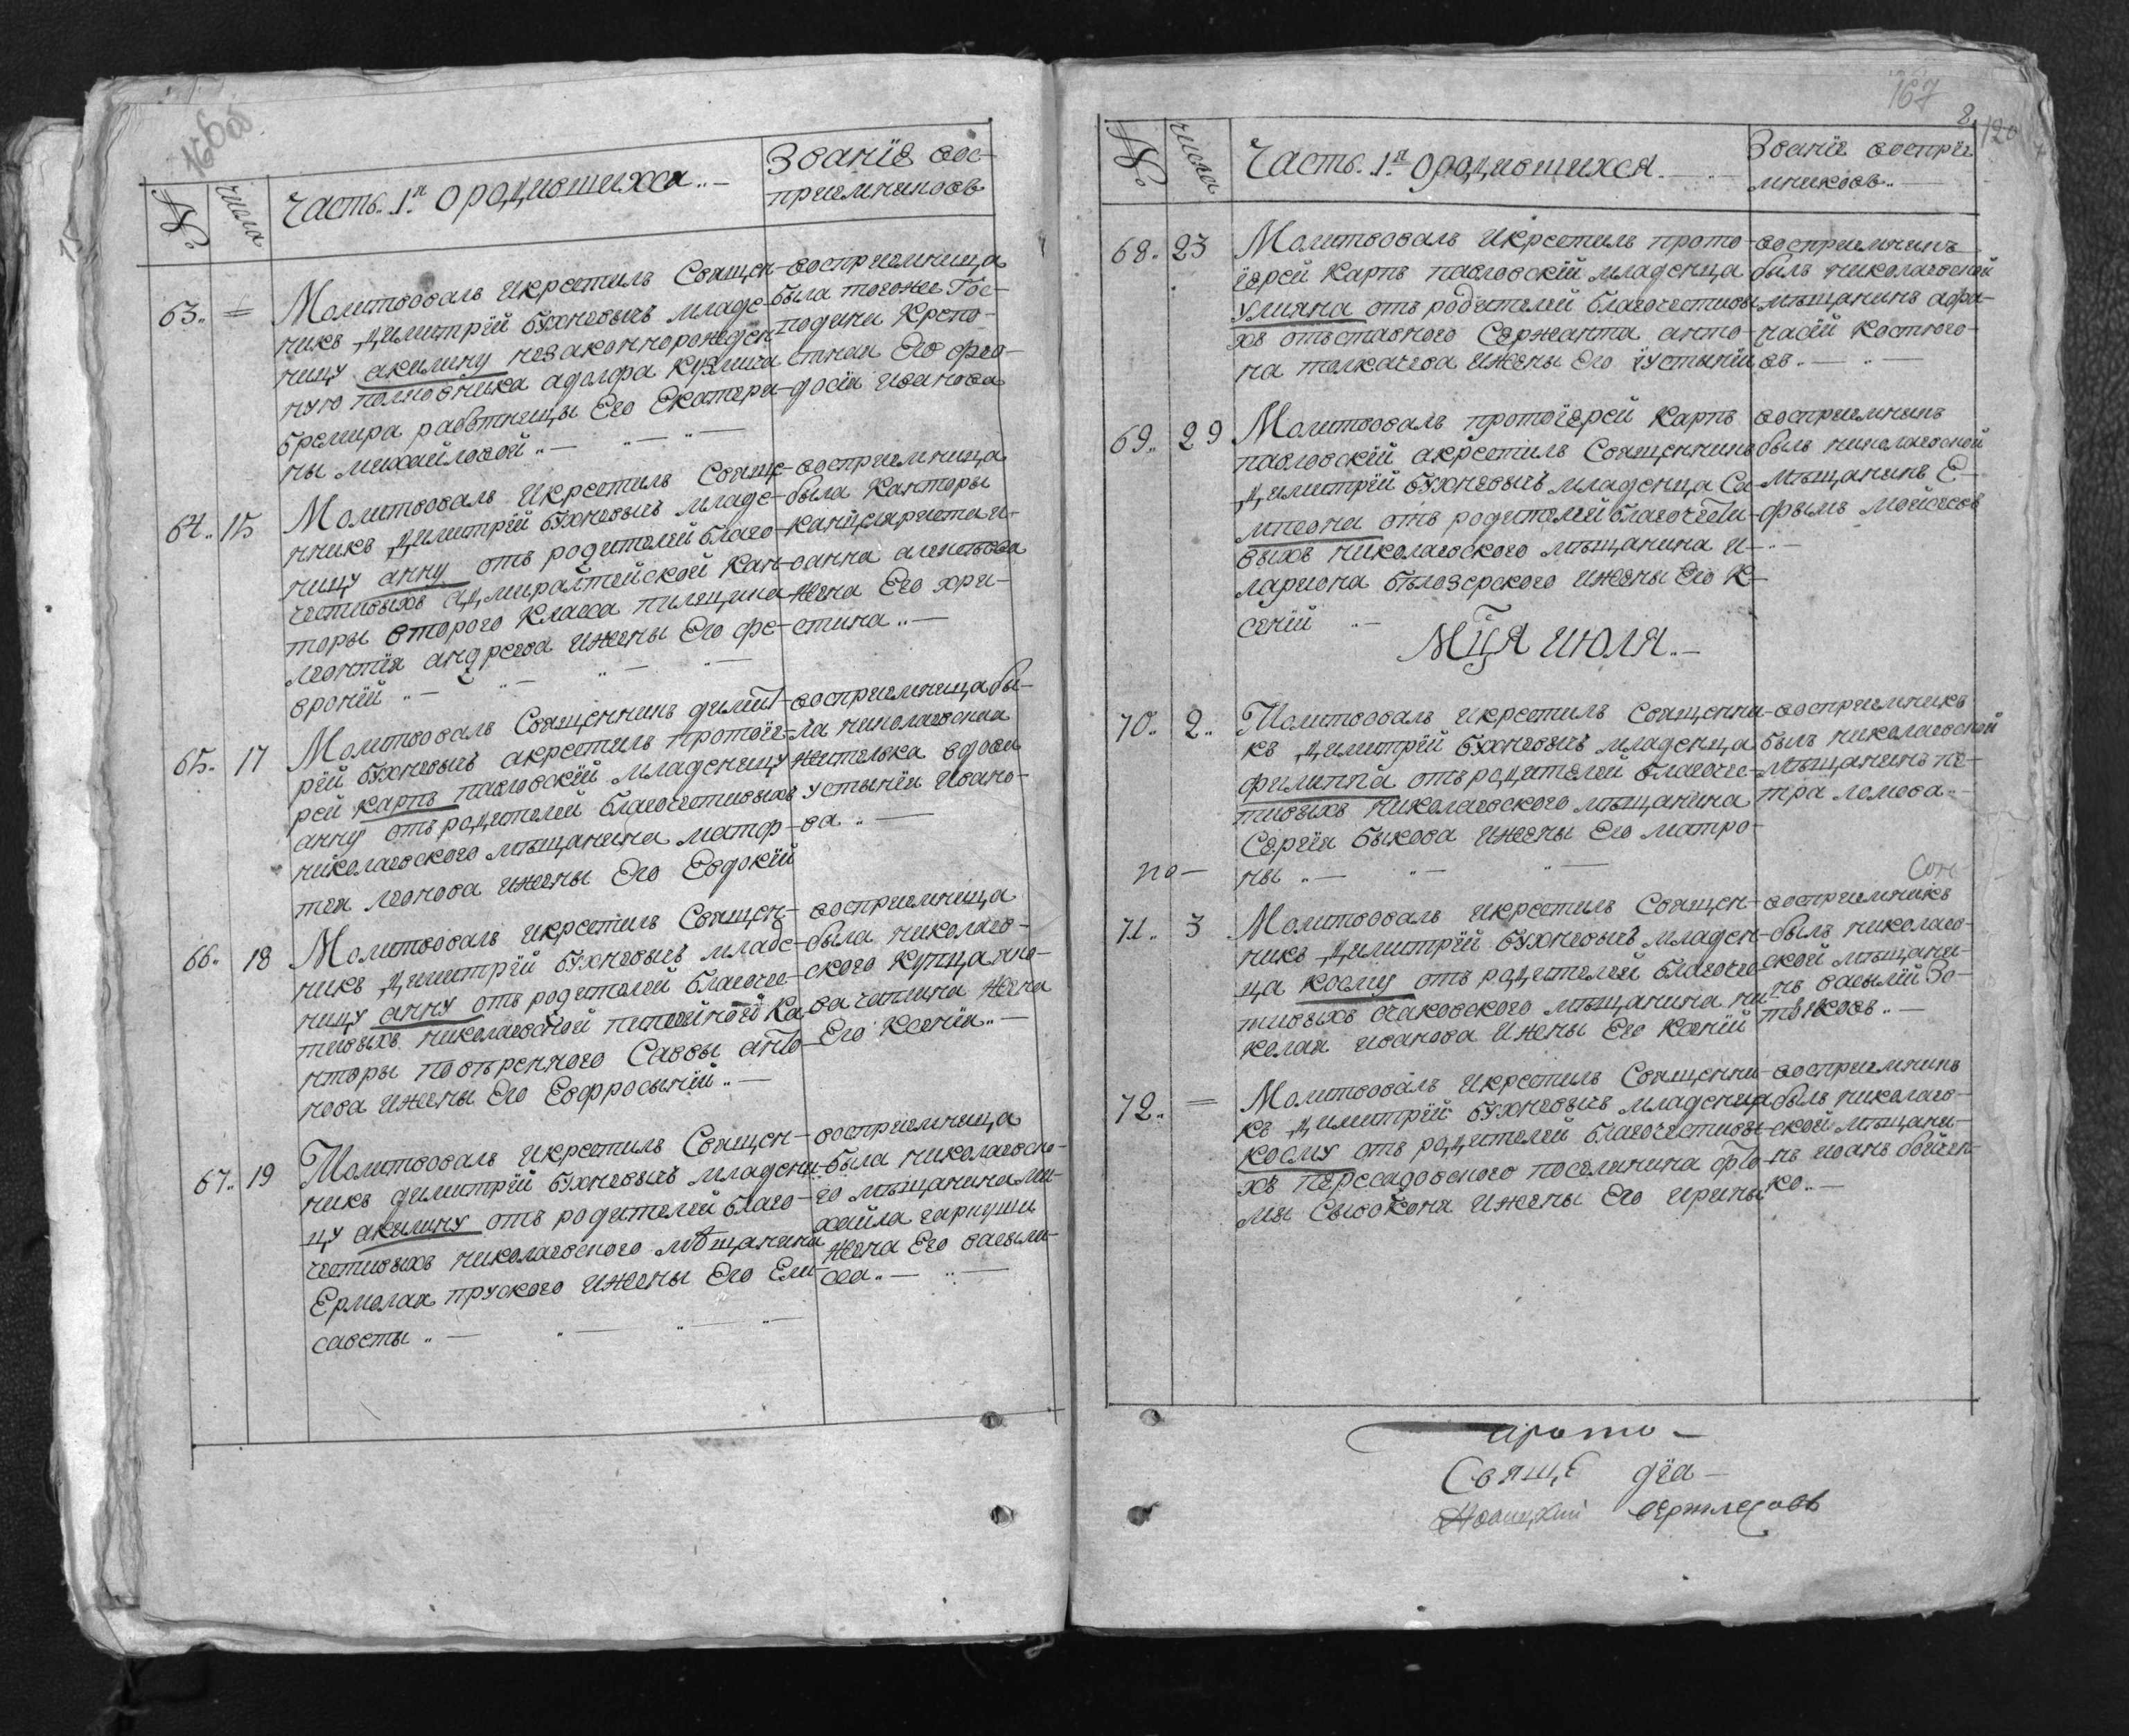 166 об
№.
числа
Часть. 1.я о родившихся..—
Званïе вос-
приемниковъ
63. =
Молитвовалъ икрестилъ Священ-
никъ Димитрïй Бухневичъ младе-
ницу акилину незаконнорожден-
ную полковника адолфа кузмича
бремира работницы Его Екатери-
ны михайловой..—
восприемница
была тогоже Гос-
подина Крепо-
стная Его фео-
досïя иванова
64. 15
Молитвовалъ икрестилъ Свяще-
нникъ Димитрïй Бухневичъ младе-
ницу анну отъ родителей благо-
честивыхъ адмиралтейской кан-
торы второго класса пилщика
леонтïя андреева ижены Его фе-
вронïй..—
восприемница
была канторы
канцеляриста и-
оанна
жена Его хри-
стина..—
65. 17
Молитвовалъ Священникъ димит-
рïй Бухневичъ акрестилъ протоïе-
рей карпъ павловскïй младеницу
анну отъ родителей благочестивыхъ
николаевского мѣщанина матф-
тея леонова ижены Его Евдокïй
восприемница бы-
ла николаевская
жителька вдова
устинïя ивано-
ва..—
66. 18
Молитвовалъ икрестилъ Священ-
никъ Димитрïй Бухневичъ младе-
ницу анну отъ родителей благоче-
тивыхъ николаевской питейной ка-
нторы повѣренного Саввы анто-
нова ижены Его Евфросинïй..—
восприемница
была николаев-
ского купца яко-
ва чаплина жена
Его Ксенïя..—
67. 19
Молитвовалъ икрестилъ Священ-
никъ димитрïй Бухневичъ младени-
цу акилину отъ родителей благо-
честивыхъ николаевского мѣщанина
Ермолая пруского ижены Его Ели-
саветы..—
восприемница
была николаевско-
го мѣщанина ми-
хайла гаркуши
жена Его васили-
са..—
167
8.
120
№.
числа
Часть. 1.я о родившихся.—
Званïе воспрiе
мниковъ..—
68. 23
Молитвовалъ икрестилъ прото-
ïерей карпъ павловскïй младенца
улияна отъ родителей благочестивы-
хъ отъставного Сержанта анто-
на толкачева ижены Его iустинïи
восприемникъ
былъ николаевской
мѣщанинъ афа-
насïй костюго-
въ..—
69. 29
Молитвовалъ протоïерей карпъ
павловскïй акрестилъ Священникъ
Димитрïй Бухневичъ младенца Са-
мпсона отъ родителей благочести-
выхъ николаевского мѣщанина и-
лариона бѣлозерского ижены Его К-
сенïй..—
восприемникъ
былъ николаевской
мѣщанинъ Е-
фымъ моисеевъ
..—
Мц҃я июля..—
70. 2..
Молитвовалъ икрестилъ Священни-
къ Димитрïй Бухневичъ младенца
филиппа отъ родителей благоче-
тивыхъ николаевского мѣщанина
Сергïя быкова ижены Его матро-
ны..—
восприемникъ
былъ николаевской
мѣщанинъ пе-
тра ломова..—
по—
Сем
71. 3
Молитвовалъ икрестилъ Священ-
никъ Димитрïй Бухневичъ младен-
ца косму отъ родителей благоче-
тивыхъ очаковского мѣщанина ни-
колая иванова ижены Его Ксенïй
восприемникъ
былъ николаев-
ской мѣщани-
нъ василïй Зо-
товъ..—
72. =
Молитвовалъ икрестилъ Священни-
къ Димитрïй Бухневичъ младенца
косму отъ родителей благочестивы-
хъ пересадовского поселянина фо-
мы Сивоконя ижены Его ирины
восприемникъ
былъ николаев-
ской мѣщани-
нъ иванъ бойчен-
ко..—
прото—
Свяще дïа—